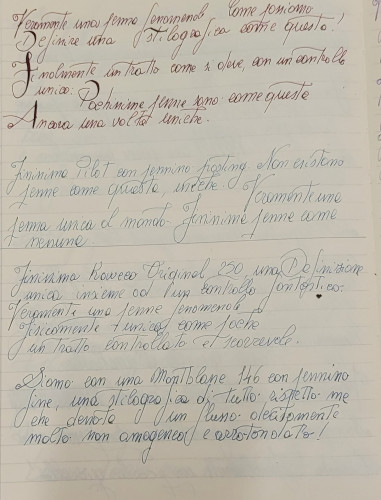 Veramente una penna fenomenale Come possiamo
Definire una Stilografica come questa!
Finalmente un tratto come si deve, con un controllo
unico. Pochissime penne sono come queste
Ancora una volta uniche.
Finissima Pilot con pennino posting Non esistono
penne come questa uniche. Veramente una
penna unica al mondo Finissime penne come
nessuna.
Finissima Kaweco Original 250 una Definizione
unica insieme ad un controllo fantastico.
Veramente una penna fenomenale
Fisicamente unica come poche
un tratto controllato e scorrevole.
Siamo con una Montblanc 146 con pennino
fine, una stilografica di tutto rispetto me
che devota un flusso decisamente
molto non omogeneo e arrotondato!